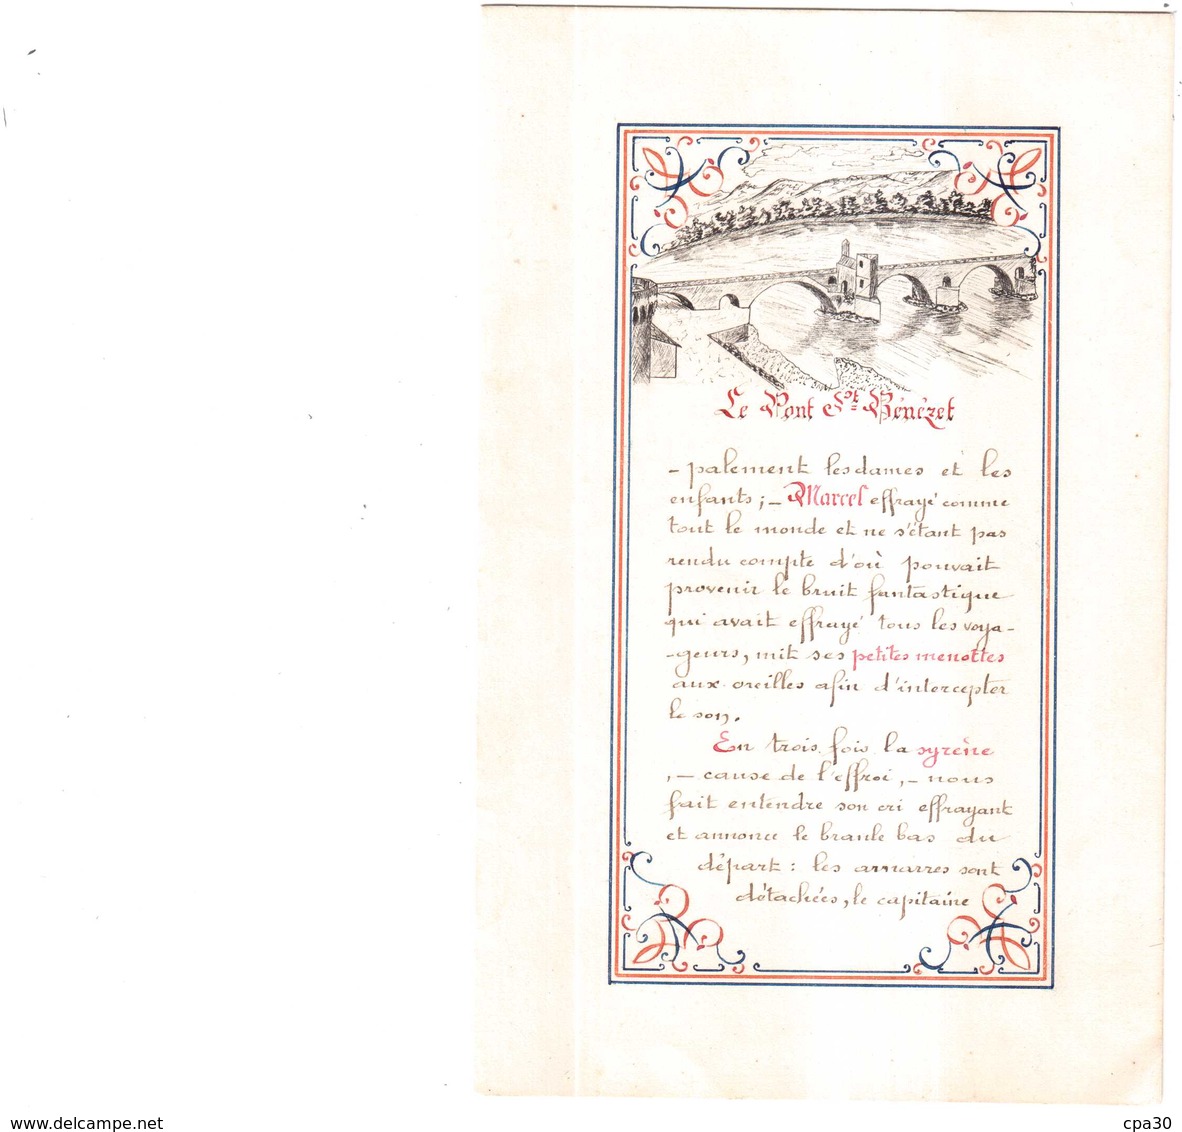 Le Pont St Bénézet
- palement les dames et les
enfants ; - Marcel effrayé comme
tout le monde et ne s'étant pas
rendu compte d'où pouvait
provenir le bruit fantastique
qui avait effrayé tous les voya-
-geurs, mit ses petites menottes
aux oreilles afin d'intercepter
le son.
En trois fois la syrène
, - cause de l'effroi, - nous
fait entendre son cri effrayant
et annonce le branle bas du
départ : les amarres sont
détachées, le capitaine
www.delcampe.net
cpa30